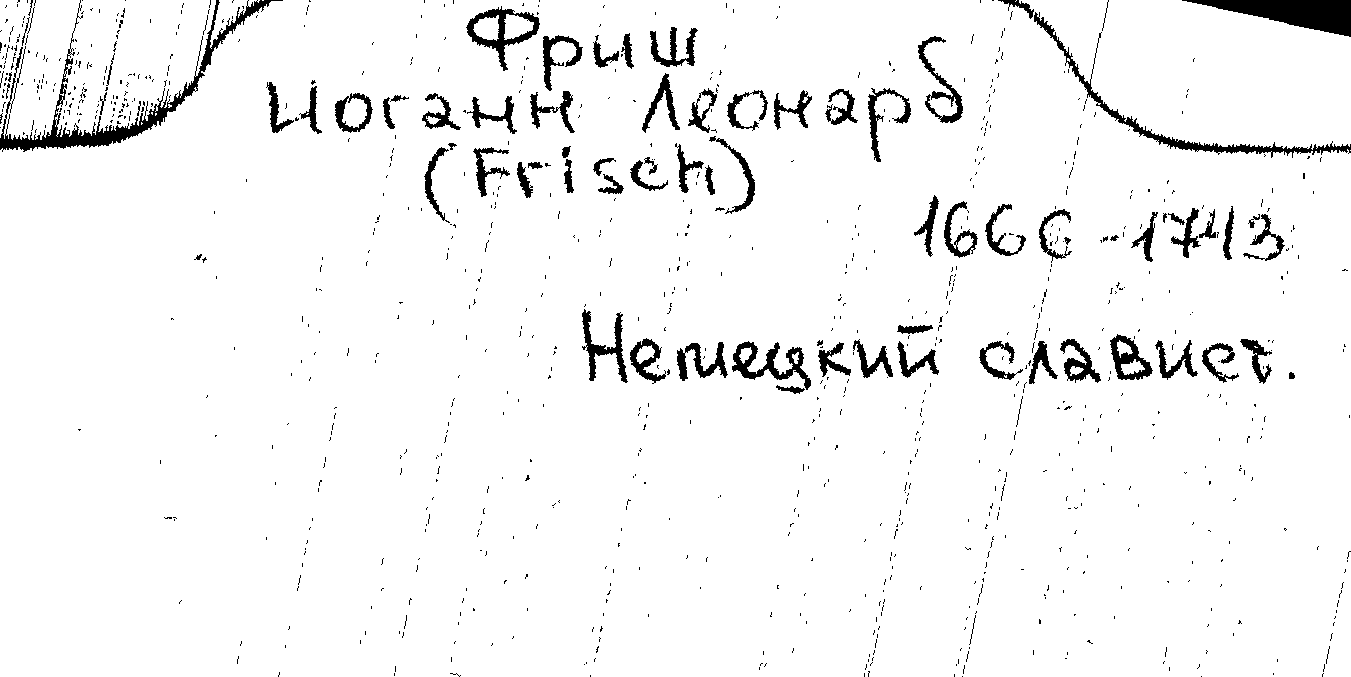 Фриш
Иоганн Леонард
(Frisch)
1666-1743
Немецкий славист.